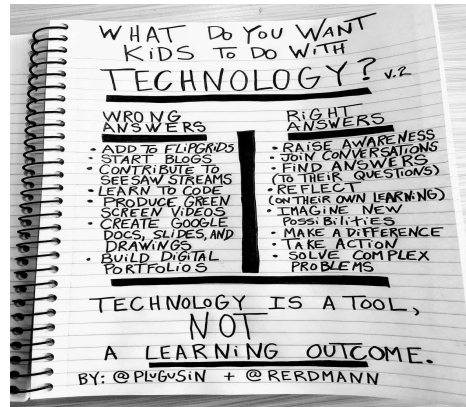 WHAT DO YOU WANT
KIDS TO DO WITH
TECHNOLOGY? V.2
WRONG
ANSWERS
• ADD TO FLIPGRIDS
• START BLOGS
• CONTRIBUTE TO
SEESAW STREAMS
• LEARN TO CODE
• PRODUCE GREEN
SCREEN VIDEOS
• CREATE GOOGLE
DOCS, SLIDES, AND
DRAWINGS
• BUILD DIGITAL
PORTFOLIOS
RIGHT
ANSWERS
• RAISE AWARENESS
• JOIN CONVERSATIONS
• FIND ANSWERS
(TO THEIR QUESTIONS)
• REFLECT
(ON THEIR OWN LEARNING)
• IMAGINE NEW
POSSIBILITIES
• MAKE A DIFFERENCE
• TAKE ACTION
• SOLVE COMPLEX
PROBLEMS
TECHNOLOGY IS A TOOL,
NOT
A LEARNING OUTCOME.
BY: @PLUGUSIN + @RERDMANN